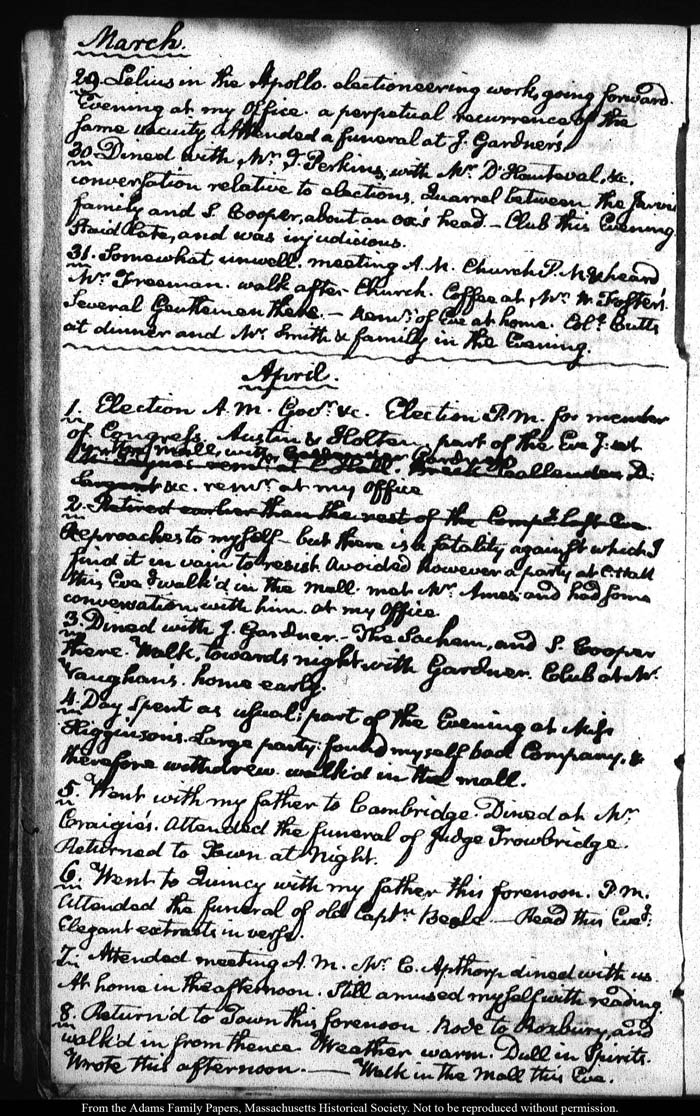 March.
29. Lelius in the Apollo. electioneering work, going forward.
Evening at my Office. a perpetual recurrence of the
same vacuity. Attended a funeral at J. Gardner's
30. Dined with Mr. T. Perkins, with Mr. D'Hauteval, &c.
conversation relative to elections. Quarrel between the Jarvis
family and S. Cooper, about an ox's head. — Club this Evening
Staid late, and was injudicious.
31. Somewhat unwell. meeting A.M. Church P.M. & heard
Mr. Freeman. walk after Church. Coffee at Mr. W. Foster's.
Several Gentlemen there. — Remr. of Eve at home. Colo. Butts
at dinner and Mr. Smith & family in the Evening.
April.
1. Election A.M. Govr. &c. Election P.M. for member
of Congress. Austin & Holten. part of the Eve J: at
Mall, with Gardner
remr. at C. Hall. Callender D.
Sargent &c. remr. at my Office
2. Retired earlier than the rest of the Compy. last Eve
Reproaches to myself — but there is a fatality against which I
find it in vain to resist. Avoided however a party at C. Hall
this Eve & walk'd in the Mall. met Mr. Ames and had some
conversation with him. at my Office
3. Dined with J. Gardner. — The Sachem, and S. Cooper
there. Walk, towards night with Gardner. Club at Mr.
Vaughan's. home early.
4. Day spent as usual; part of the Evening at Miss
Higginson's. Large party: found myself bad Company, &
therefore withdrew. walk'd in the mall.
5. Went with my father to Cambridge. Dined at Mr.
Craigie's. Attended the funeral of Judge Trowbridge.
Returned to Town at Night.
6. Went to Quincy with my father this forenoon. P.M.
Attended the funeral of old Captn. Beale. — Read this Eveg.
Elegant extracts in verse.
7. Attended meeting A.M. Mr. C. Apthorp dined with us.
At home in the afternoon. Still amused myself with reading.
8. Return'd to Town this forenoon. Rode to Roxbury, and
walk'd in from thence. Weather warm. Dull in Spirits.
Wrote this afternoon. — Walk in the Mall this Eve.
From the Adams Family Papers, Massachusetts Historical Society. Not to be reproduced without permission.